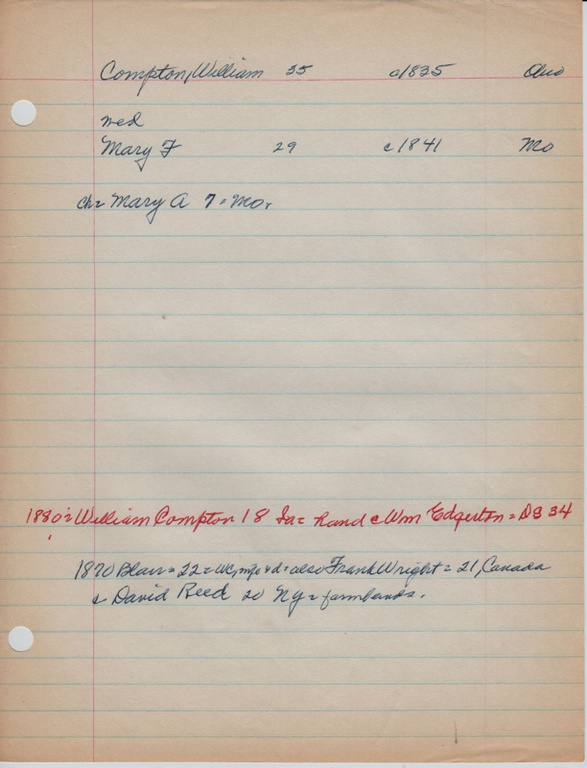 Compton, William 35 c1835 Ohio
wed
Mary F 29 c1841 Mo
ch= Mary A 7= Mo.
1880= William Compton 18 Ia= hand c Wm Edgerton = DS 34
1870 Blair= 22= also Frank Wright = 21, Canada
& David Reed 20 Ny= farmhands.